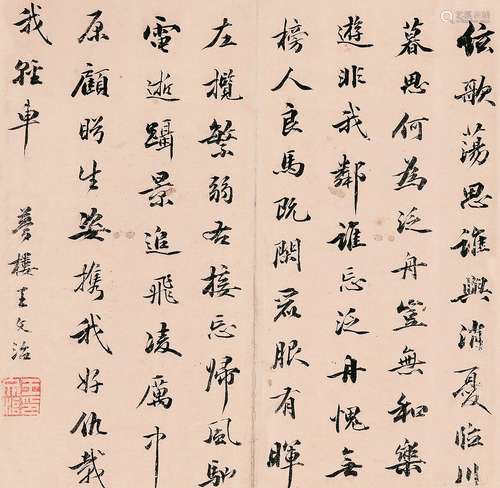 絃歌蕩思誰與消憂臨川
暮思何為泛舟豈無和樂
遊非我鄰誰忘泛舟愧無
榜人良馬既閑麗服有暉
左攬繁弱右接忘歸風馳
電逝躡景追飛凌厲中
原顧盼生姿攜我好仇載
我輕車
夢樓王文治